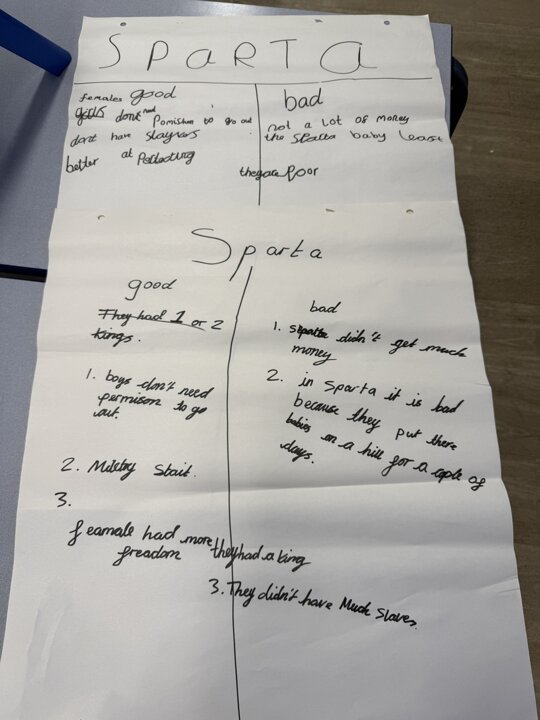 SPARTA
females good
girls dont need Pomishen to go out
dont have slayvers
better at Pertecting
bad
not a lot of money
the SPartta baby least
they are Poor
Sparta
good
They had 1 or 2
kings.
1. boys don't need
permison to go
out.
2. Miletry Stait.
3.
feamale had more
freadom
bad
1. sparta didn't get much
money
2. in Sparta it is bad
because they put there
babies on a hill for a cople of
days.
they had a king
3. They didn't have Much Slaves.